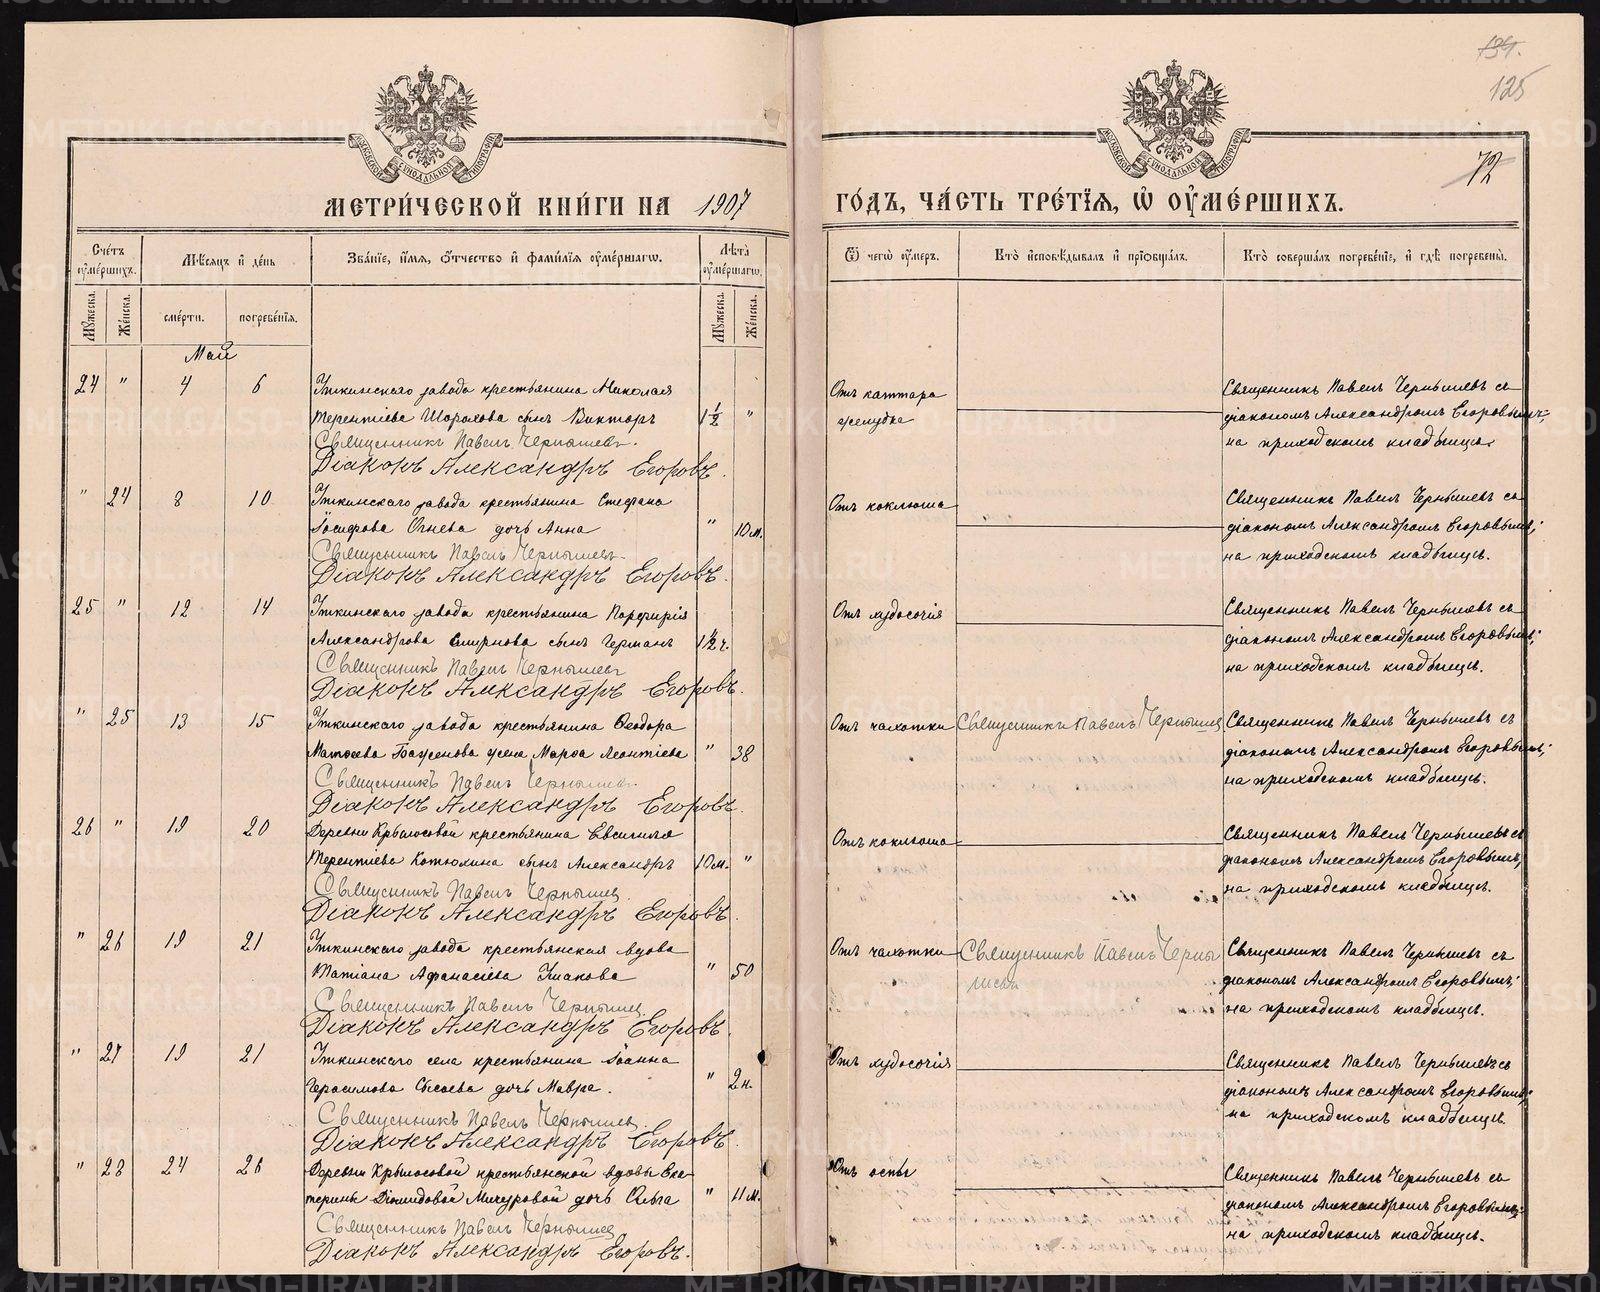 134.
125
72
МОСКОВСКОЙ СѴНОДАЛЬНОЙ ТИПОГРАФІИ
МОСКОВСКОЙ СѴНОДАЛЬНОЙ ТИПОГРАФІИ
МЕТРИ́ЧЕСКОЙ КНИ́ГИ НА 1907 ГО́ДЪ, ЧА́СТЬ ТРЕ́ТЇѦ, Ѡ҆ ОУ҆МЕ́РШИХЪ.
Сче́тъ оу҆ме́ршихъ.
Мꙋ́жеска.
Же́нска.
Мѣ́сѧцъ и҆ де́нь
сме́рти.
погребе́нїѧ.
Зва́нїе, и҆́мѧ, ѻ҆́тчество и҆ фами́лїѧ оу҆ме́ршагѡ.
Лѣ́та оу҆ме́ршагѡ.
Мꙋ́жеска.
Же́нска.
Ѿ чегѡ̀ оу҆́меръ.
Кто̀ и҆сповѣ́дывалъ и҆ прїѡбща́лъ.
Кто̀ соверша́лъ погребе́нїе, и҆ гдѣ̀ погребены̀.
Май
24 " 4 6 Уткинскаго завода крестьянина Николая
Терентіева Шорохова сынъ Викторъ 1½ "
Священникъ Павелъ Чернышевъ.
Діаконъ Александръ Егоровъ.
Отъ каттара
желудка
Священникъ Павелъ Чернышевъ съ
діакономъ Александромъ Егоровымъ;
на приходскомъ кладбищѣ.
" 24 8 10 Уткинскаго завода крестьянина Стефана
Іосифова Огнева дочь Анна " 10 м.
Священникъ Павелъ Чернышевъ.
Діаконъ Александръ Егоровъ.
Отъ коклюша
Священникъ Павелъ Чернышевъ съ
діакономъ Александромъ Егоровымъ;
на приходскомъ кладбищѣ.
25 " 12 14 Уткинскаго завода крестьянина Порфирія
Александрова Смирнова сынъ Германъ
Священникъ Павелъ Чернышевъ
Діаконъ Александръ Егоровъ.
Отъ худосочія
Священникъ Павелъ Чернышевъ съ
діакономъ Александромъ Егоровымъ;
на приходскомъ кладбищѣ.
" 25 13 15 Уткинскаго завода крестьянина Ѳеодора
Матѳеева жена Марѳа Леонтіева " 38
Священникъ Павелъ Чернышев.
Діаконъ Александръ Егоровъ.
Отъ чахотки
Священникъ Павелъ Чернышев
Священникъ Павелъ Чернышевъ съ
діакономъ Александромъ Егоровымъ;
на приходскомъ кладбищѣ.
26 " 19 20 Деревни Крылосовой крестьянина Евсигнія
Терентіева Котюхина сынъ Александръ 10 м. "
Священникъ Павелъ Чернышев.
Діаконъ Александръ Егоровъ.
Отъ коклюша
Священникъ Павелъ Чернышевъ съ
діакономъ Александромъ Егоровымъ;
на приходскомъ кладбищѣ.
" 26 19 21 Уткинскаго завода крестьянская вдова
Татіана Аѳанасіева Ушакова " 50
Священникъ Павелъ Чернышев.
Діаконъ Александръ Егоровъ.
Отъ чахотки
Священникъ Павелъ Черны
шевъ
Священникъ Павелъ Чернышевъ съ
діакономъ Александромъ Егоровымъ;
на приходскомъ кладбищѣ.
" 27 19 21 Уткинскаго села крестьянина Іоанна
Герасимова Сысоева дочь Мавра. " 2 н.
Священникъ Павелъ Чернышев.
Діаконъ Александръ Егоровъ.
Отъ худосочія
Священникъ Павелъ Чернышевъ съ
діакономъ Александромъ Егоровымъ;
на приходскомъ кладбищѣ.
" 28 24 26 Деревни Крылосовой крестьянской вдовы Ека-
терины Діомидовой Мичуровой дочь Ольга " 11 м.
Священникъ Павелъ Чернышев
Діаконъ Александръ Егоровъ.
Отъ оспы
Священникъ Павелъ Чернышевъ съ
діакономъ Александромъ Егоровымъ;
на приходскомъ кладбищѣ.
METRIKI.GASO-URAL.RU